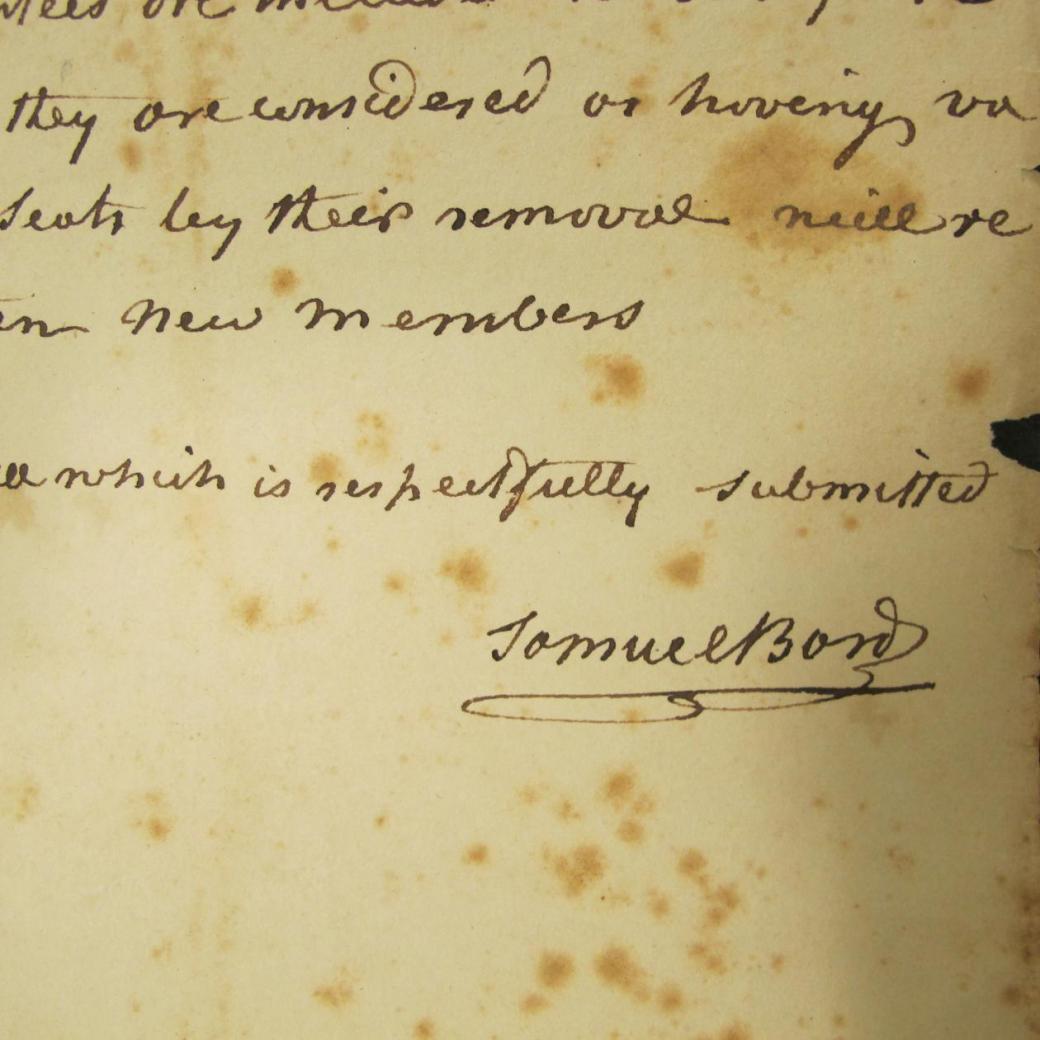 they are considered as having va
Seats by their removal will re
en new members
which is respectfully submitted
Samuel Bard